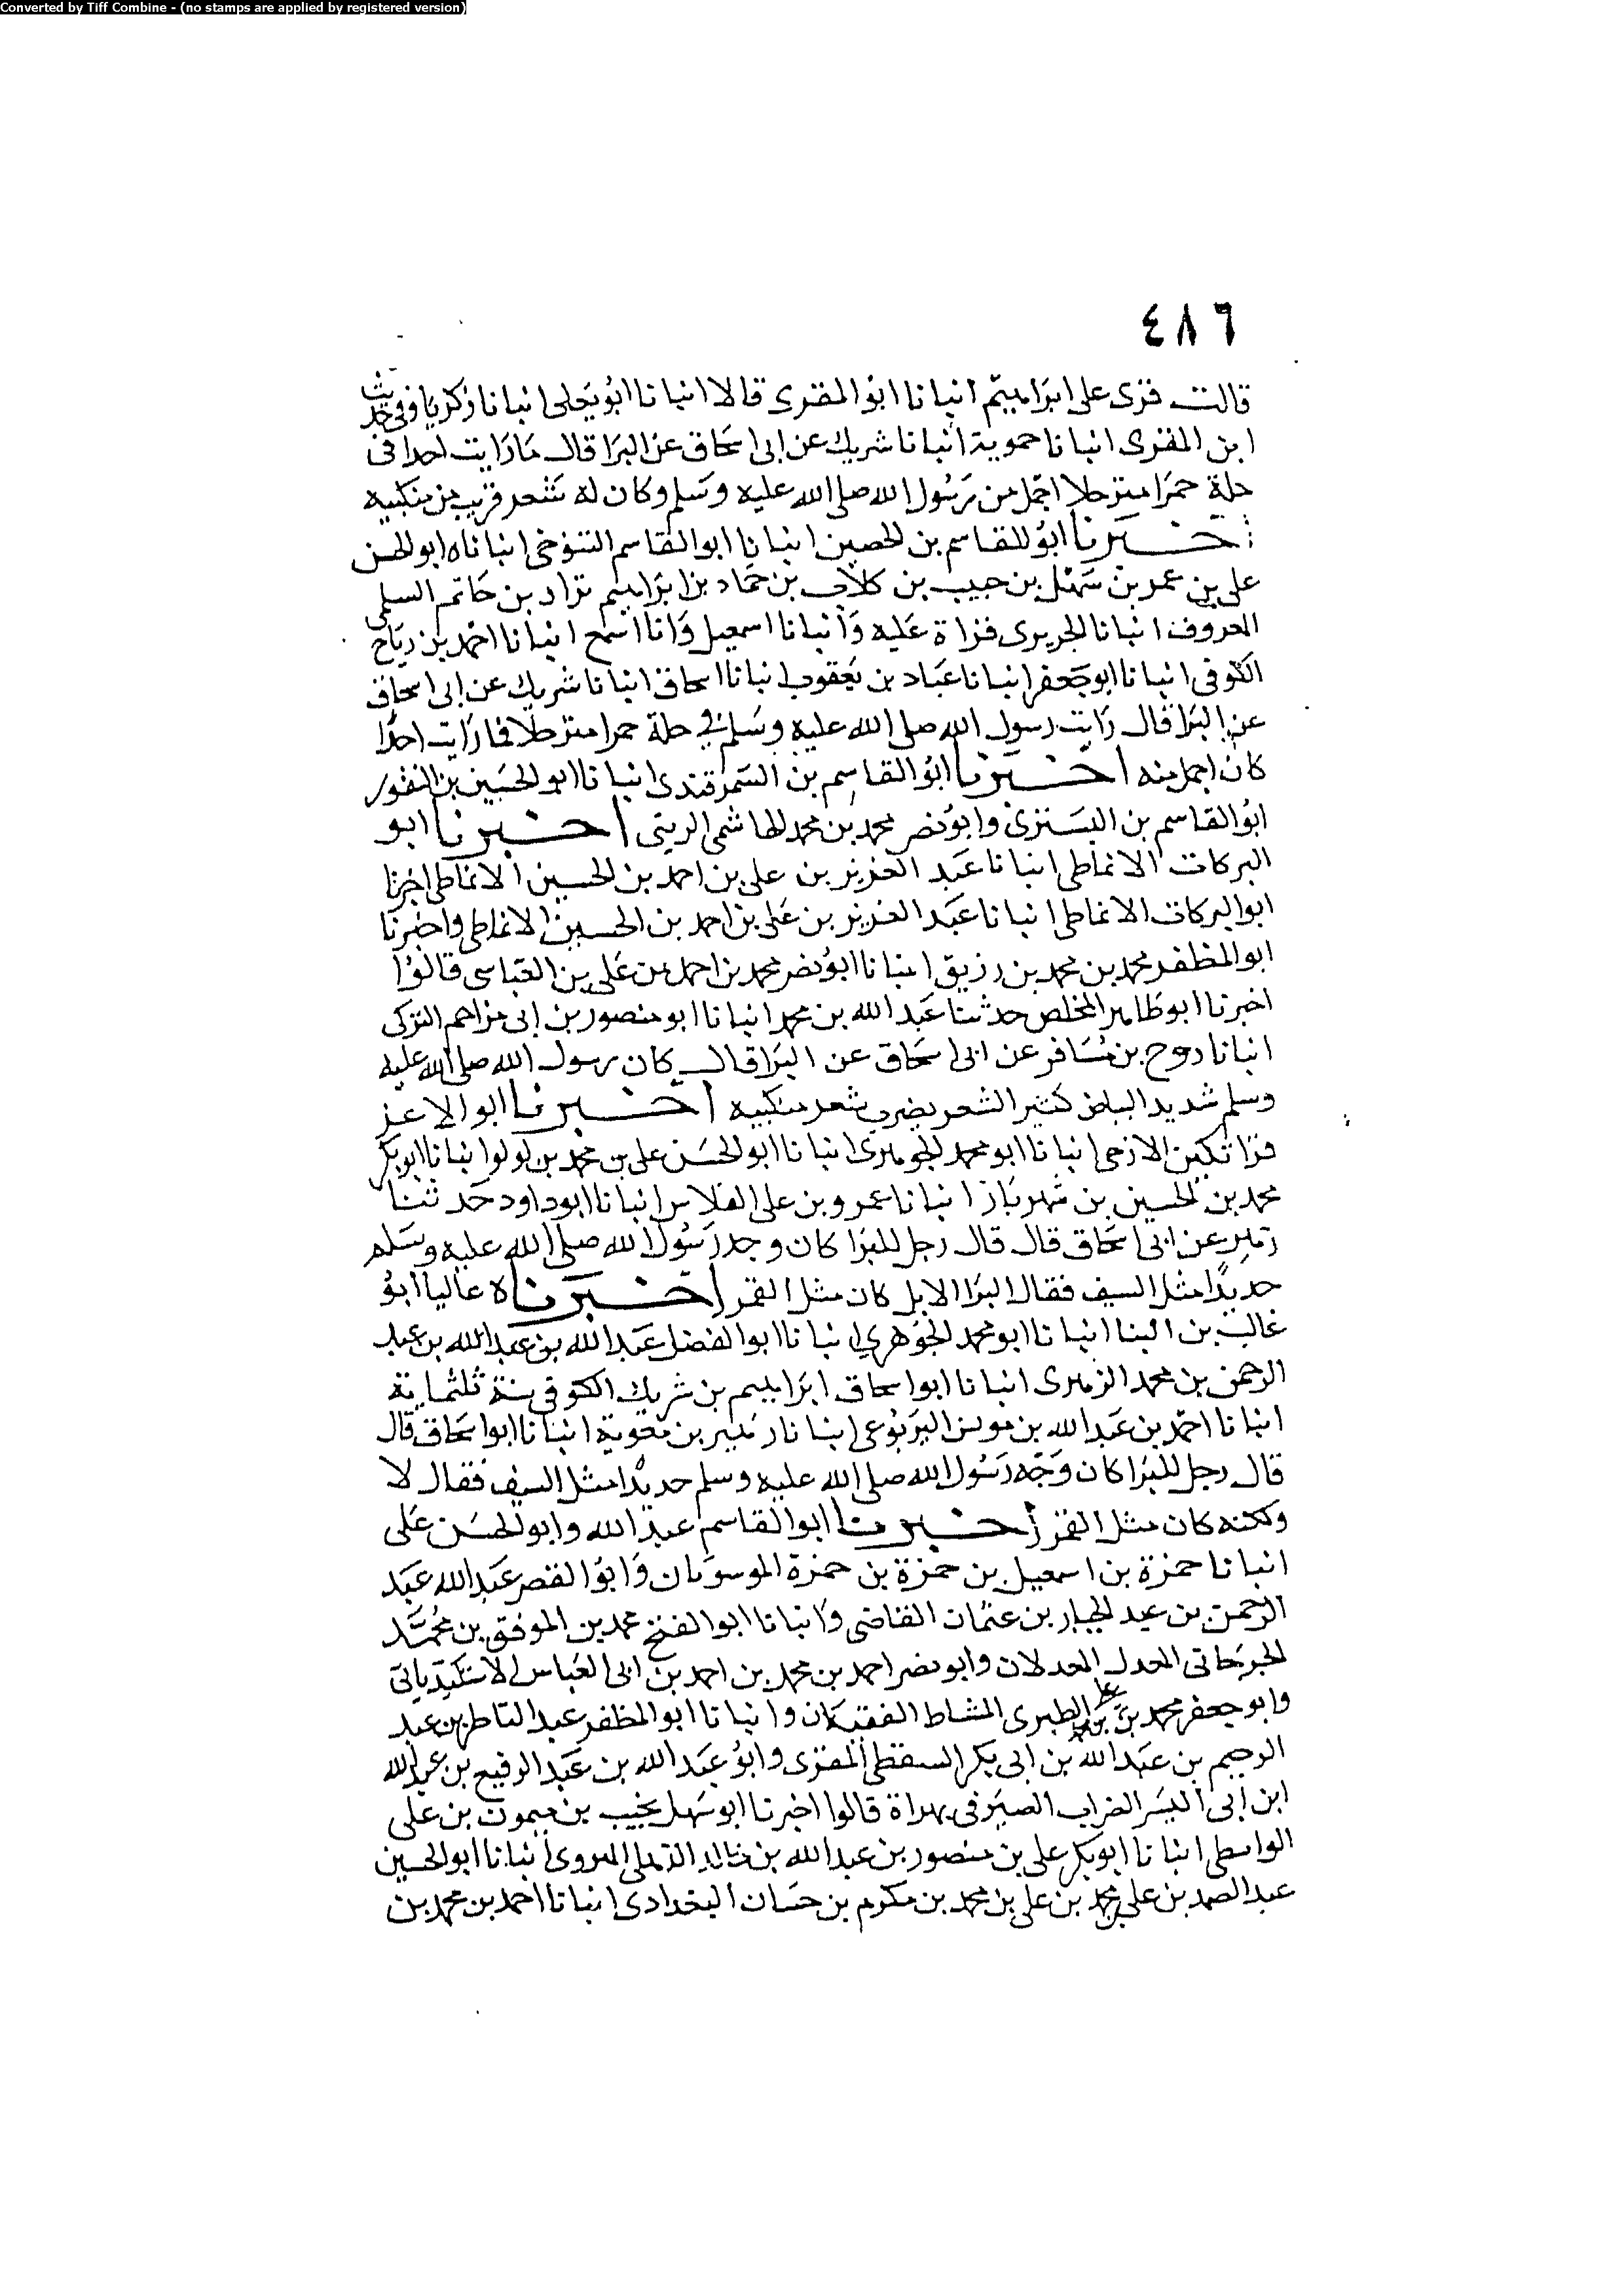 Converted by Tiff Combine - (no stamps are applied by registered version)
٤٨٦
قالت قرى على ابراهيم انبانا ابو المقرى قالا انبانا ابو يعلى انبانا زكريا وفى حديث
ابن المقرى انبانا حموية انبانا شريك عن ابى اسحاق عن البرا قال ما رايت احدا فى
حلة حمرا مترجلا اجمل من رسول الله صلى الله عليه وسلم وكان له شعر قريب من منكبيه
اخبرنا ابو القاسم بن الحصين انبانا ابو القاسم التنوخى انباناه ابو الحسن
على بن عمر بن سهل بن حبيب بن كلاب بن حماد بن ابراهيم نزاد بن حاتم السلمى
المعروف انبانا الجريرى قراة عليه وانبانا اسمعيل وانا اسمع انبانا احمد بن رباح
الكوفى انبانا ابو جعفر انبانا عباد بن يعقوب انبانا اسحاق انبانا شريك عن ابى اسحاق
عن البرا قال رايت رسول الله صلى الله عليه وسلم فى حلة حمرا مترجلا فما رايت احدًا
كان اجمل منه اخبرنا ابو القاسم بن السمرقندى انبانا ابو الحسين بن النقور
ابو القاسم بن البسترى وابو نصر محمد بن محمد الهاشمى الزينى اخبرنا ابو
البركات الانماطى انبانا عبد العزيز بن على بن احمد بن الحسين الانماطى اخبرنا
ابو البركات الانماطى انبانا عبد العزيز بن على بن احمد بن الحسين الانماطى واخبرنا
ابو المظفر محمد بن محمد بن رزيق انبانا ابو نصر محمد بن احمد بن على بن العباسى قالوا
اخبرنا ابو طاهر المخلص حدثنا عبد الله بن محمد انبانا ابو منصور بن ابى مزاحم التركى
انبانا روح بن مسافر عن ابى اسحاق عن البرا قال كان رسول الله صلى الله عليه
وسلم شديد البياض كثير الشعر يضرب شعر منكبيه اخبرنا ابو الاعز
قراتكين الازجى انبانا ابو محمد الجوهرى انبانا ابو الحسن على بن محمد بن لولو انبانا ابو بكر
محمد بن الحسين بن شهرباز انبانا عمرو بن على الفلاس انبانا ابو داود حدثنا
زهير عن ابى اسحاق قال قال رجل للبرا كان وجد رسول الله صلى الله عليه وسلم
حديدًا مثل السيف فقال البرا لا بل كان مثل القمر اخبرناه عاليا ابو
غالب بن البنا انبانا ابو محمد الجوهرى انبانا ابو الفضل عبد الله بن عبد الله بن عبد
الرحمن بن محمد الزهرى انبانا ابو اسحاق ابراهيم بن شريك الكوفى سنة ثلثماية
انبانا احمد بن عبد الله بن مونس اليربوعى انبانا زهير بن معوية انبانا ابو اسحاق قال
قال رجل للبرا كان وجه رسول الله صلى الله عليه وسلم حديدًا مثل السيف فقال لا
ولكنه كان مثل القمر اخبرنا ابو القاسم عبد الله وابو الحسن على
انبانا حمزة بن اسمعيل بن حمزة بن حمزة الموسويان وابو القصر عبد الله عبد
الرحمن بن عبد الجبار بن عثمان القاضى وانبانا ابو الفتح محمد بن الموفق بن محمد
الجرجانى المعدل العدلان وابو نصر احمد بن محمد بن احمد بن ابى العباس
وابو جعفر محمد بن على الطبرى المشاط الفقيهان وانبانا ابو المظفر عبد الفاطر بن عبد
الرحيم بن عبد الله بن ابى بكر السقطى المقرى وابو عبد الله بن عبد الرفيع بن عبد الله
ابن ابى اليسر الضراب الصيرفى بهراة قالوا اخبرنا ابو سهل نجيب بن ميمون بن على
الواسطى انبانا ابو بكر على بن منصور بن عبد الله بن خالد الذهلى الهروى انبانا ابو الحسين
عبد الصمد بن على بن محمد بن على بن محمد بن مكرم بن حسان البغدادى انبانا احمد بن محمد بن